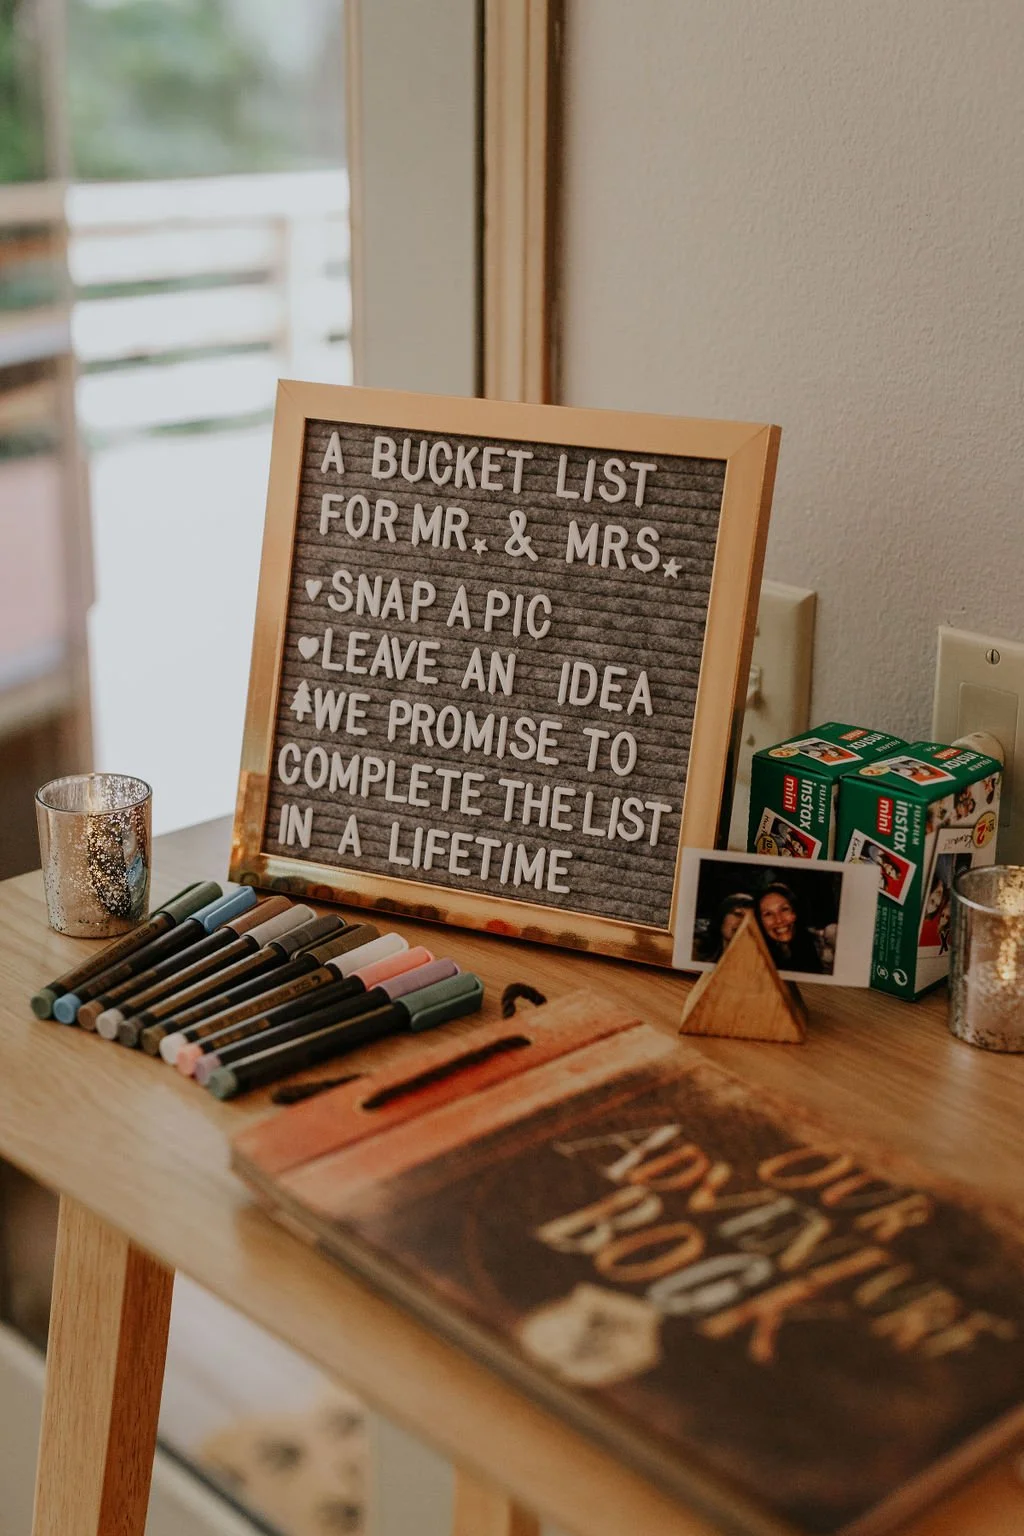 A BUCKET LIST
FOR MR. & MRS.
SNAP A PIC
LEAVE AN IDEA
WE PROMISE TO
COMPLETE THE LIST
IN A LIFETIME
FUJIFILM
instax
mini
FUJIFILM
instax
mini
FUJIFILM
instax
mini
FUJIFILM
instax
mini
OUR
ADVENTURE
BOOK